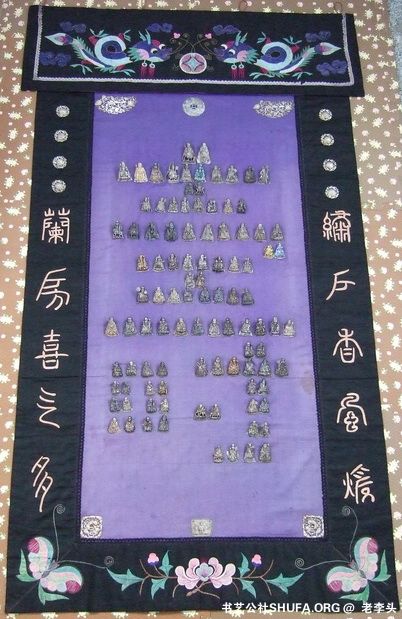 繡戶香風煖
蘭房喜气多
书艺公社SHUFA.ORG @ 老李头